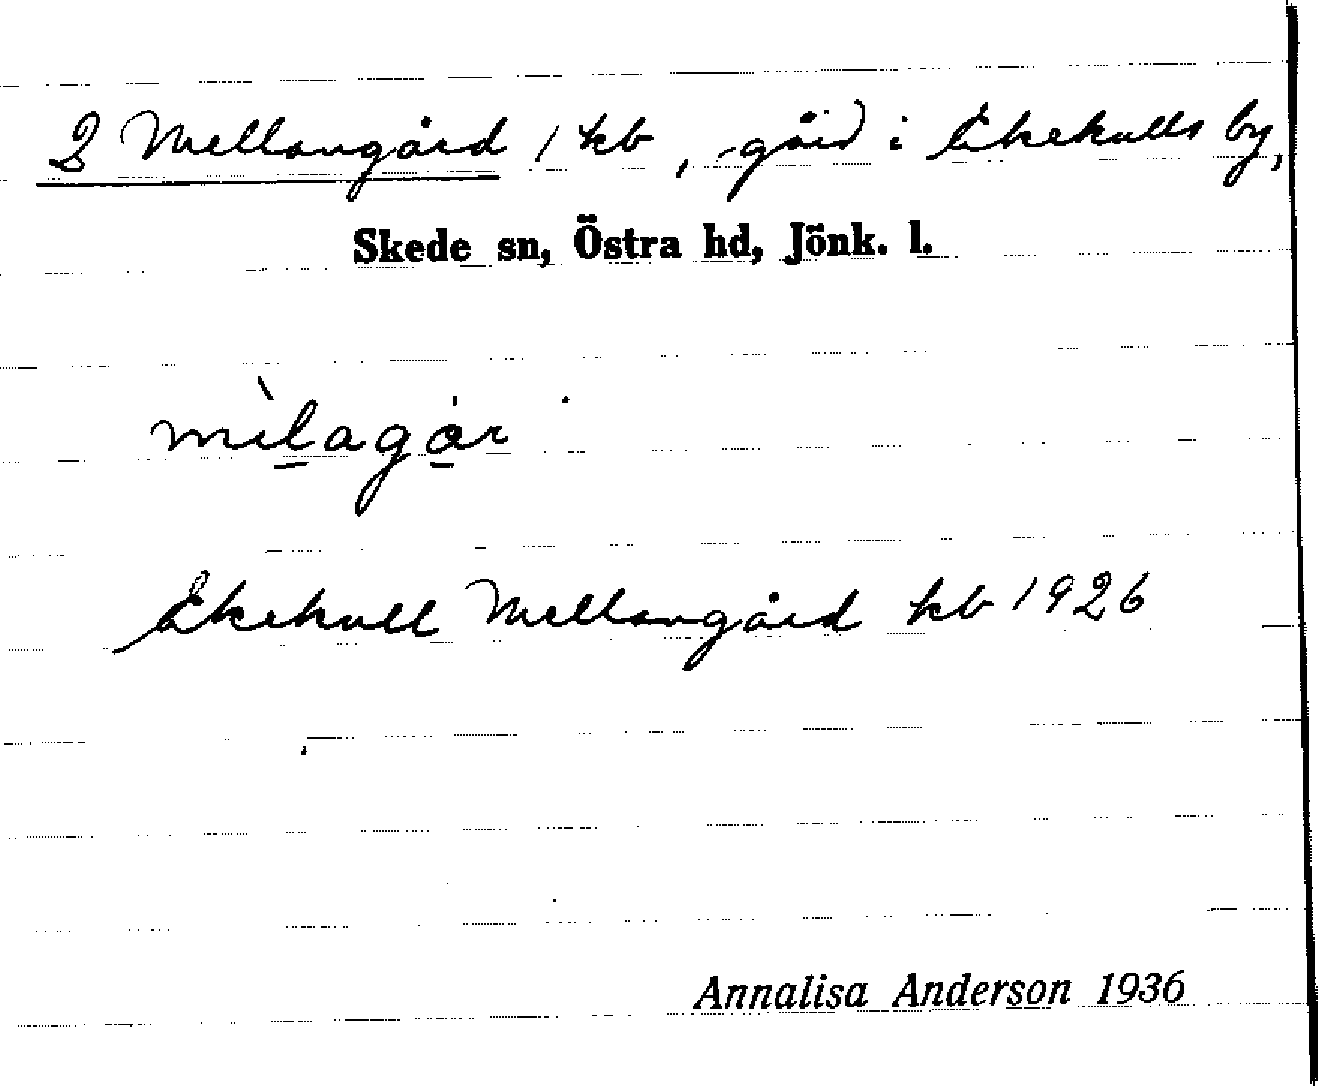 2 Mellangård / kb, -gård i Ekekulls by,
Skede sn, Östra hd, Jönk. l.
mìlagår
Ekekull Mellangård kb 1926
Annalisa Anderson 1936